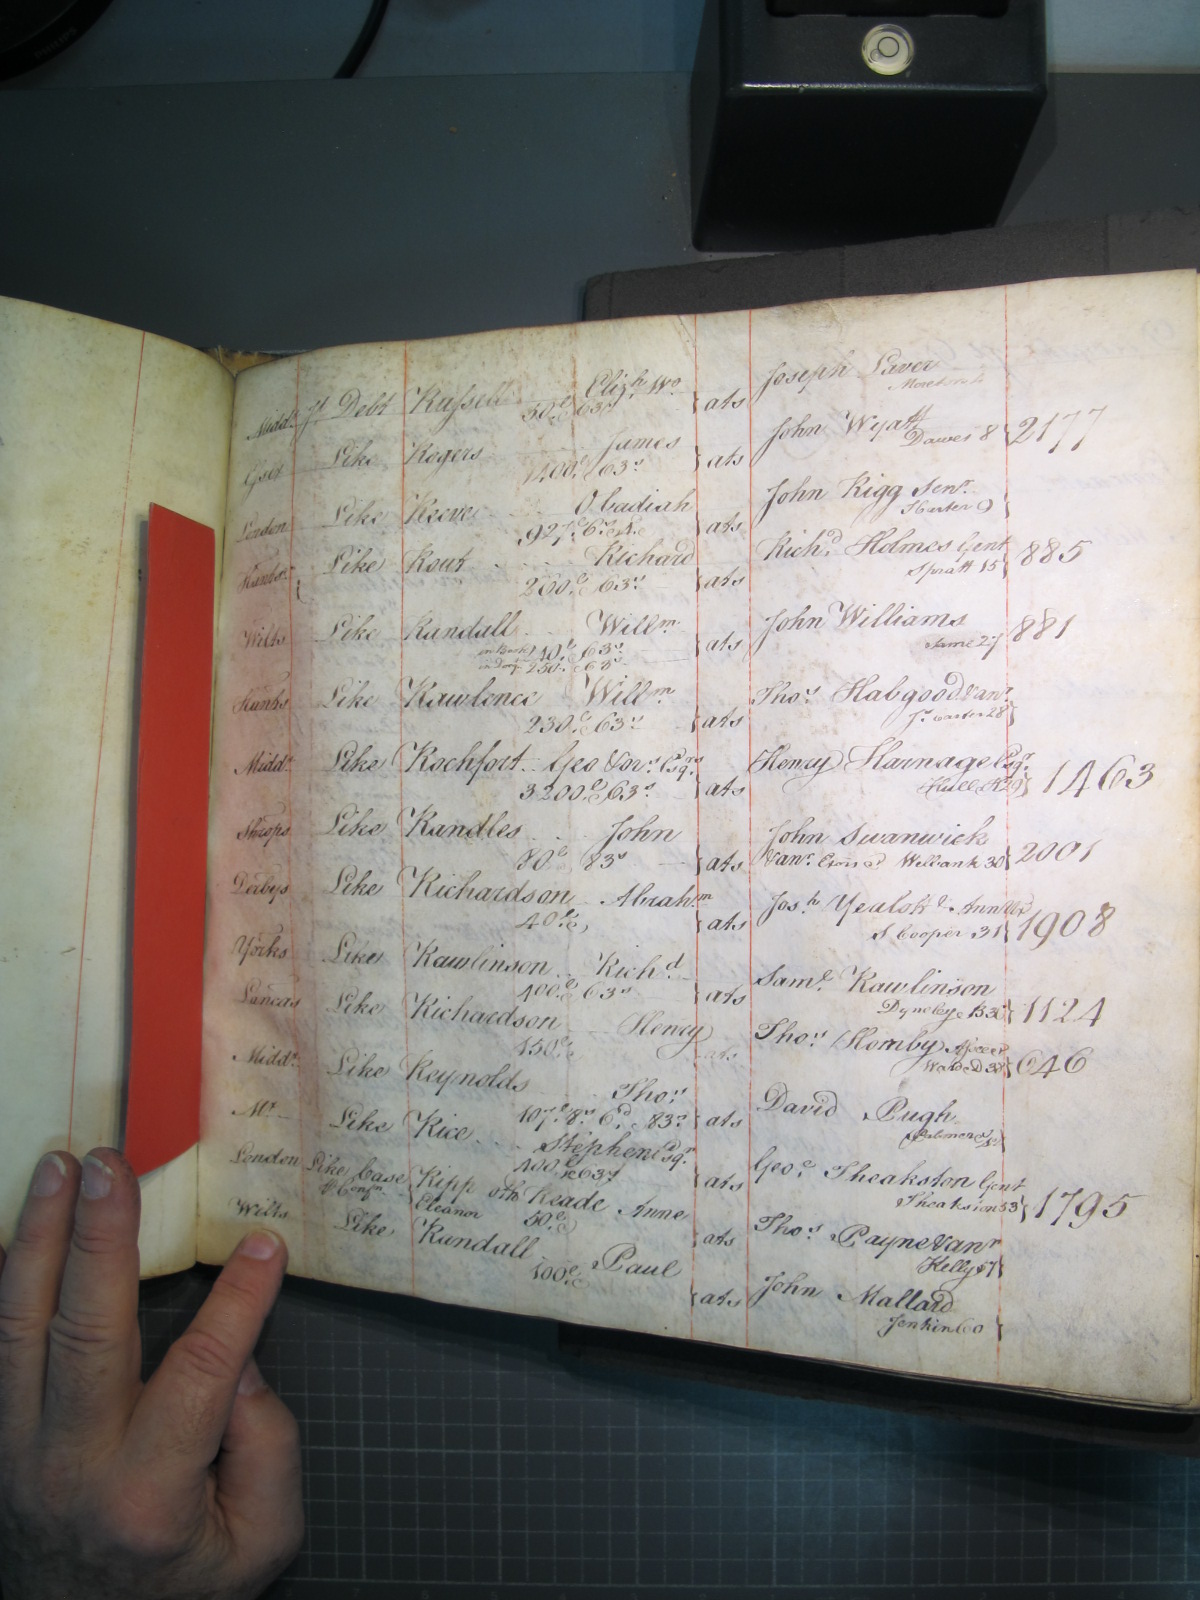 Midd.x Jt Debt Russell Eliz.h Wo 50.£ 63s ats Joseph Laver
James
Gset Like Rogers 1400.£ 63.s ats John Wyatt Dawes 8 2177
London Like Reeve Obadiah 927.£ ats John Rigg Senr. Harter 9
Like Rout Richard 200.£ 63.s ats Rich.d Holmes Gent Spratt 15 885
Wilts Like Randall Will.m 40.£ 63.s 250.£ 63s ats John Williams Same 27 881
Hants Like Rawlence Will.m 230.£ 63.s ats Tho.s Habgood Van.r Jr. Carter 28
Midd.x Like Rochfort Geo Esq.r 3200.£ 63.s ats Henry Harnage Esq.r 1463
Shrops Like Randles John 80£ 83s ats John Swanwick Van.r Welbank 30 2001
Derbys Like Richardson Abrah.m 40.£ ats Jos.h Ann Ux S Cooper 31 1908
Yorks Like Rawlinson Rich.d 400.£ 63s ats Sam.l Rawlinson Dyneley 1124
Lancas Like Richardson Henry 150.£ ats Tho.s Hornby 646
Midd.x Like Reynolds Tho.s 107.£ 8.s 6.d 83.s ats David Pugh
M.x Like Rice Stephen Esq.r 400.£ 63s ats Geo.e Theakston Gent Theakston 53 1795
London Like Case Ripp oth Reade Anne
Eleanor 50.£ ats Tho.s Payne Van.r Kelly 57
Wilts Like Randall Paul 100.£ ats John Mallard Jenkin 60